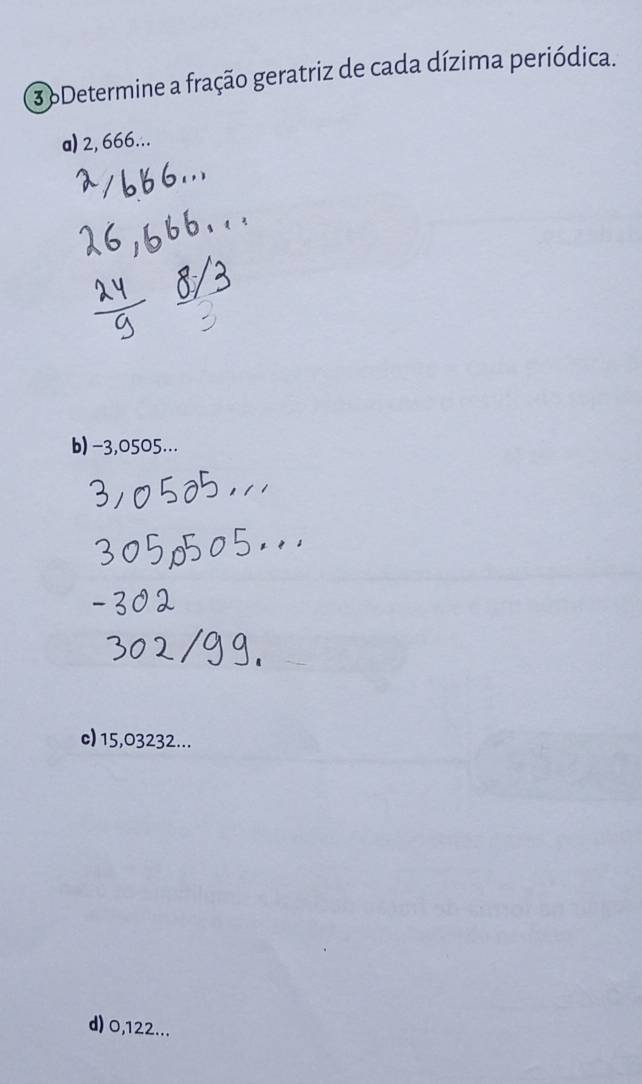 3 Determine a fração geratriz de cada dízima periódica.
a) 2, 666...
2,666...
26,666...
24/9 8/3
3
b) −3,0505...
3,0505...
305,0505...
-302
302/99.
c) 15,03232...
d) 0,122...